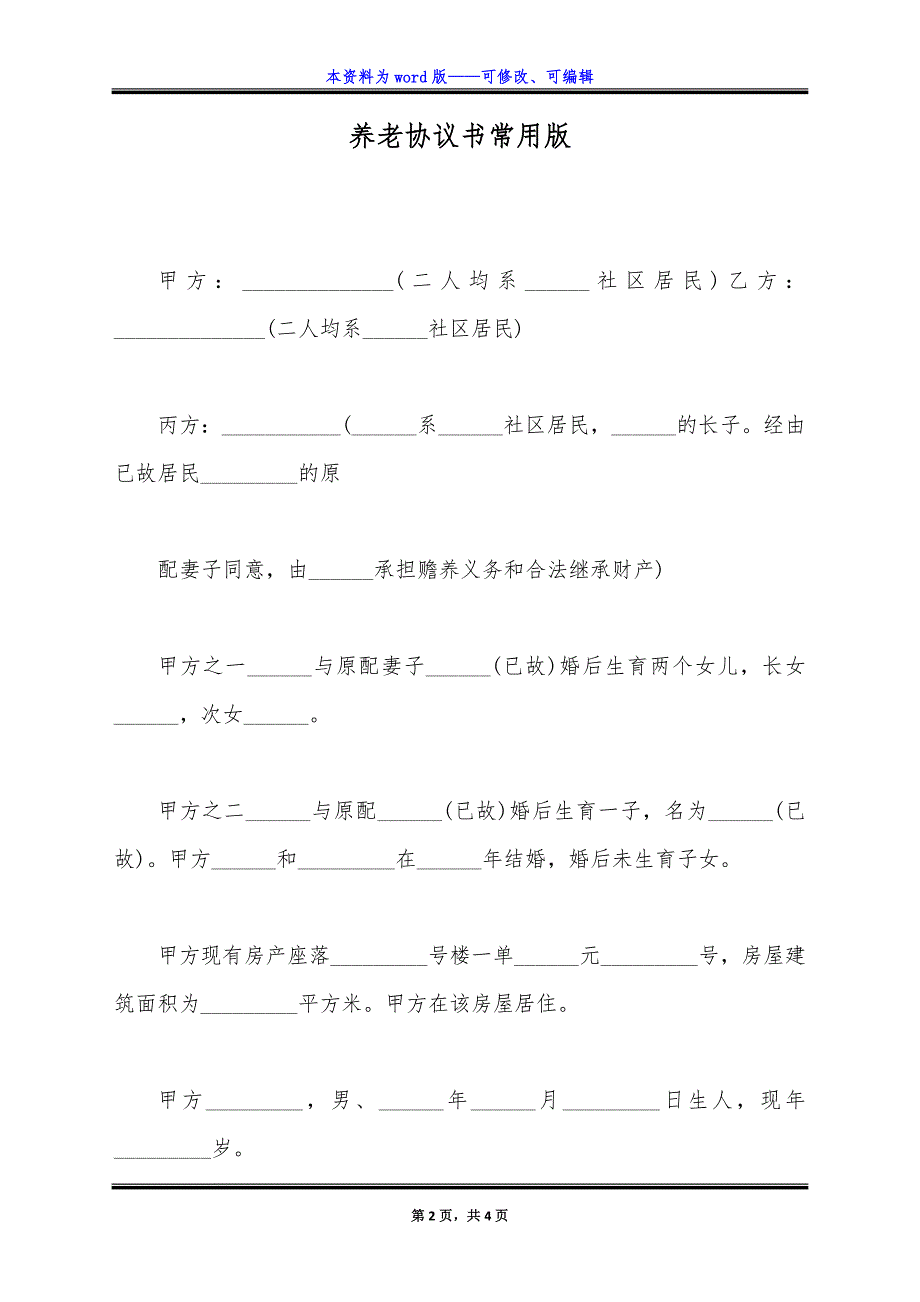 本资料为 word 版——可修改、可编辑
养老协议书常用版
甲方：______________(二人均系______社区居民)乙方：
______________(二人均系______社区居民)
丙方：___________(______系______社区居民，______的长子。经由
已故居民_________的原
配妻子同意，由______承担赡养义务和合法继承财产)
甲方之一______与原配妻子______(已故)婚后生育两个女儿，长女
______，次女______。
甲方之二______与原配______(已故)婚后生育一子，名为______(已
故)。甲方______和_________在______年结婚，婚后未生育子女。
甲方现有房产座落_________号楼一单______元_________号，房屋建
筑面积为_________平方米。甲方在该房屋居住。
甲方_________，男、______年______月_________日生人，现年
_________岁。
第 2 页，共 4 页